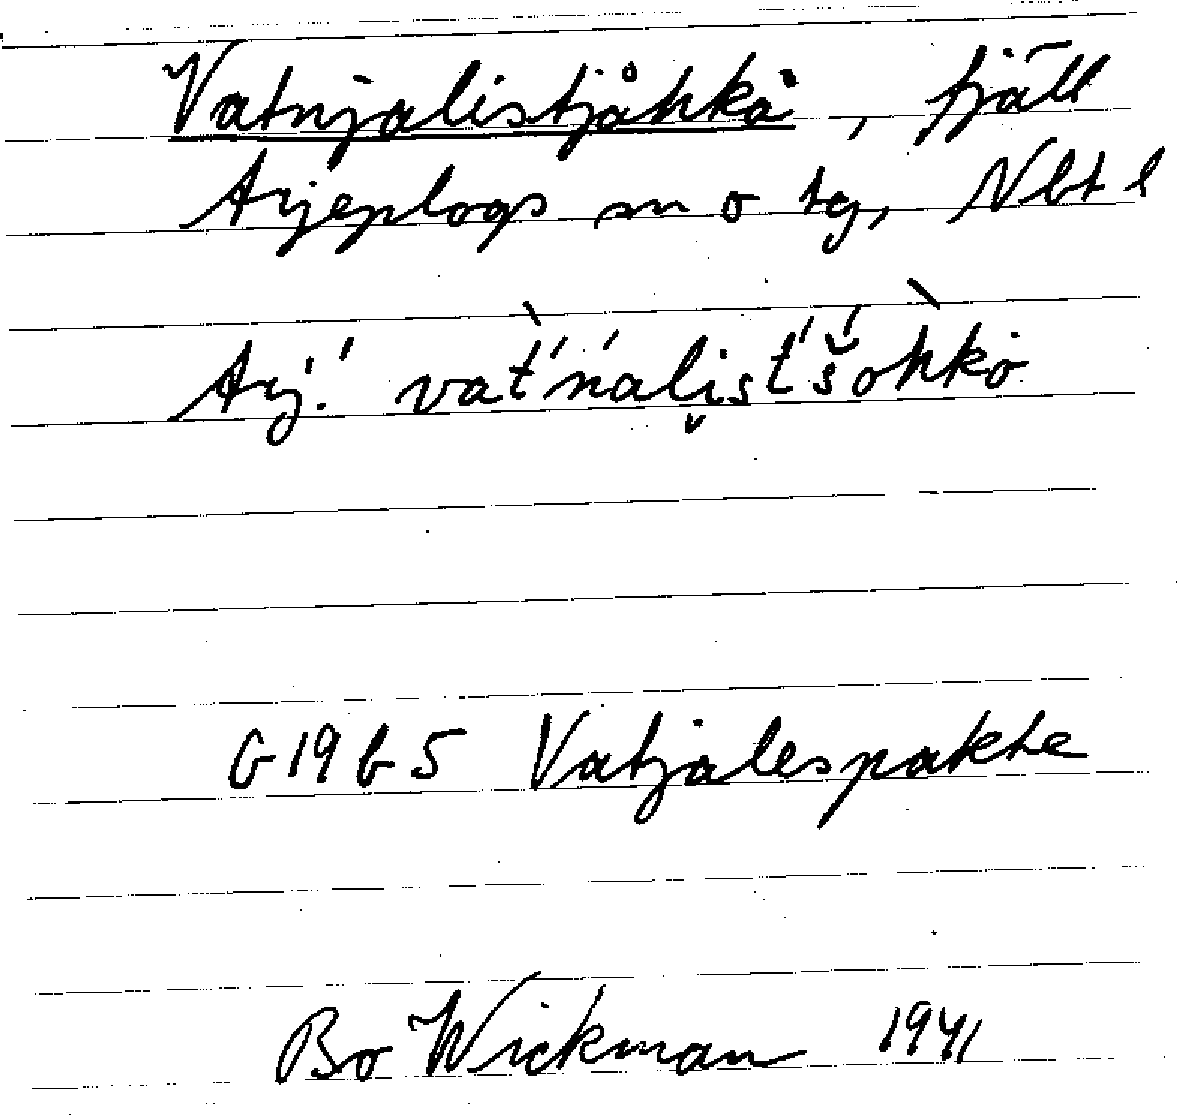 Vatnjalistjåhkå, fjäll
Arjeplogs sn o tg, Nbt l
Arj.' vat̀'ńali̮st́'š́òhkȯ
G 19 b 5 Vatjalespakte
Bo Wickman 1941